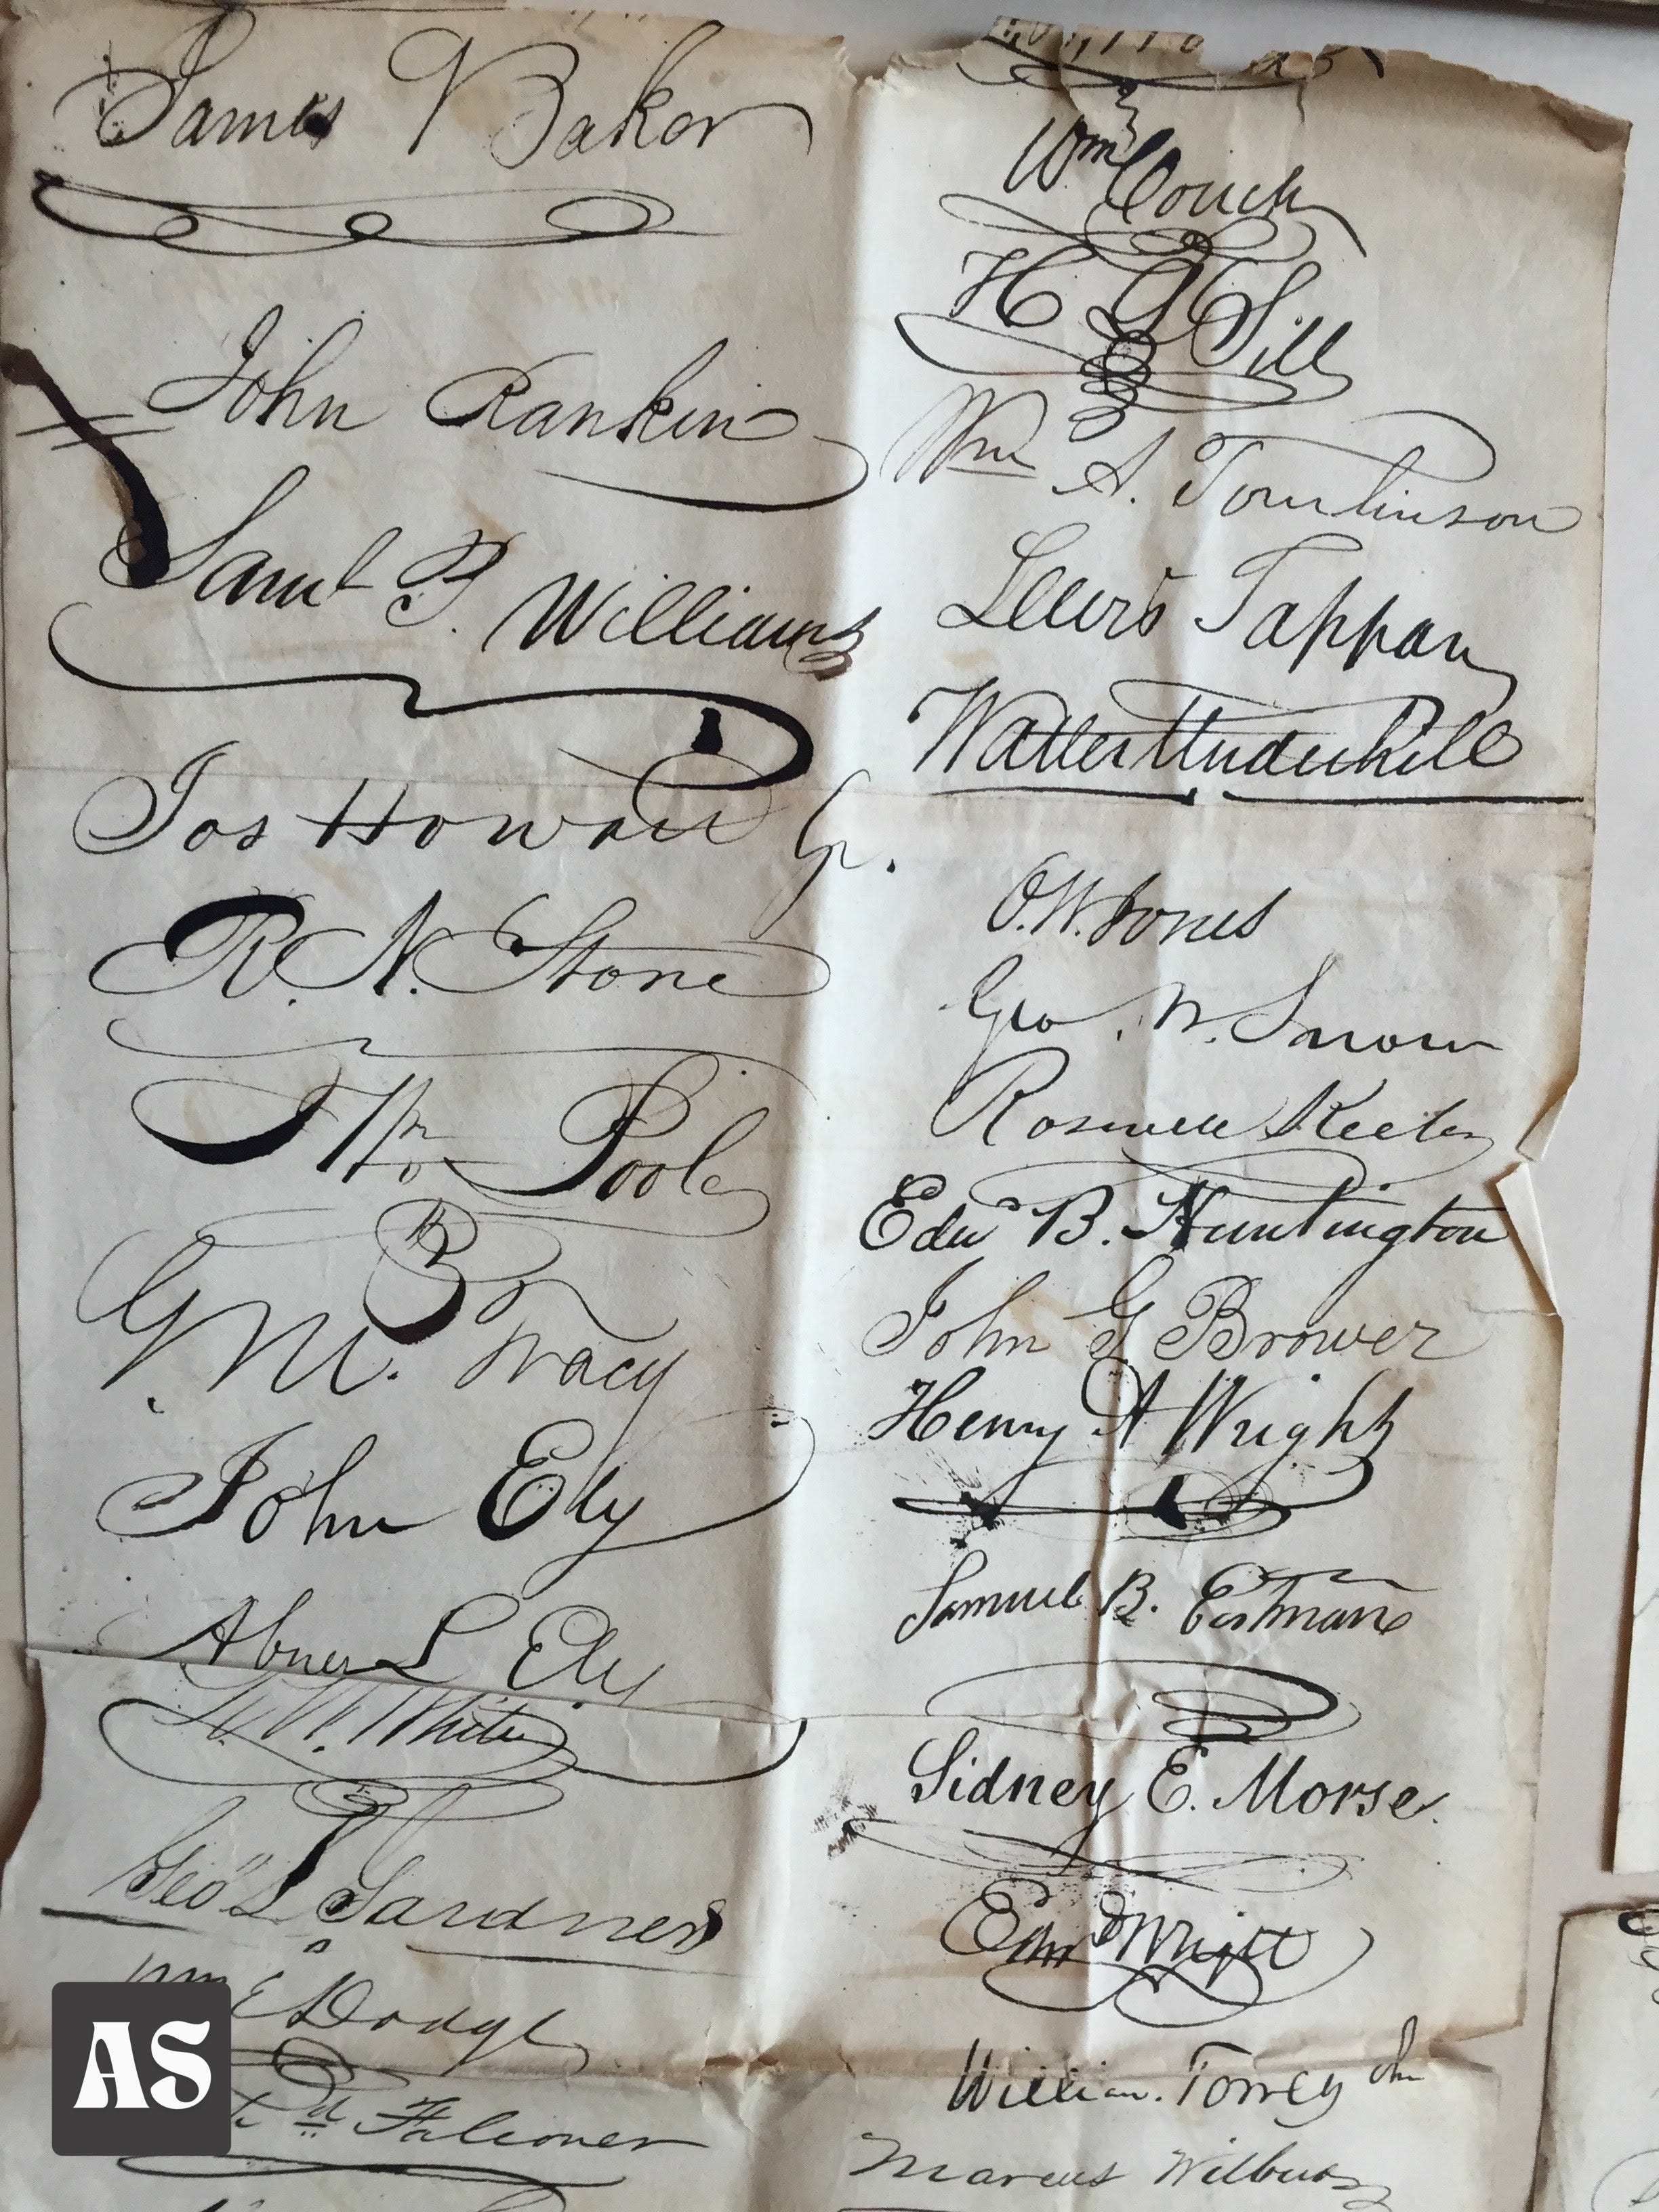 James Baker
John Rankin
Saml P. Williams
Jos Howard Jr.
R. N. Stone
Wm Poole
G. M. Tracy
John Ely
Abner L Ely
N. W. White
Geo L Gardner
Wm E Dodge
Falconer
Wm Couch
H G Sill
Wm A. Tomlinson
Lewis Tappan
Walter Underhill
O. W. Jones
Geo. W. Snow
Roswell
Edwd B. Huntington
John G Brower
Henry A Wright
Samuel B. Eastman
Sidney E. Morse.
Edwd Wright
William Torrey
Marcus Wilbur
AS